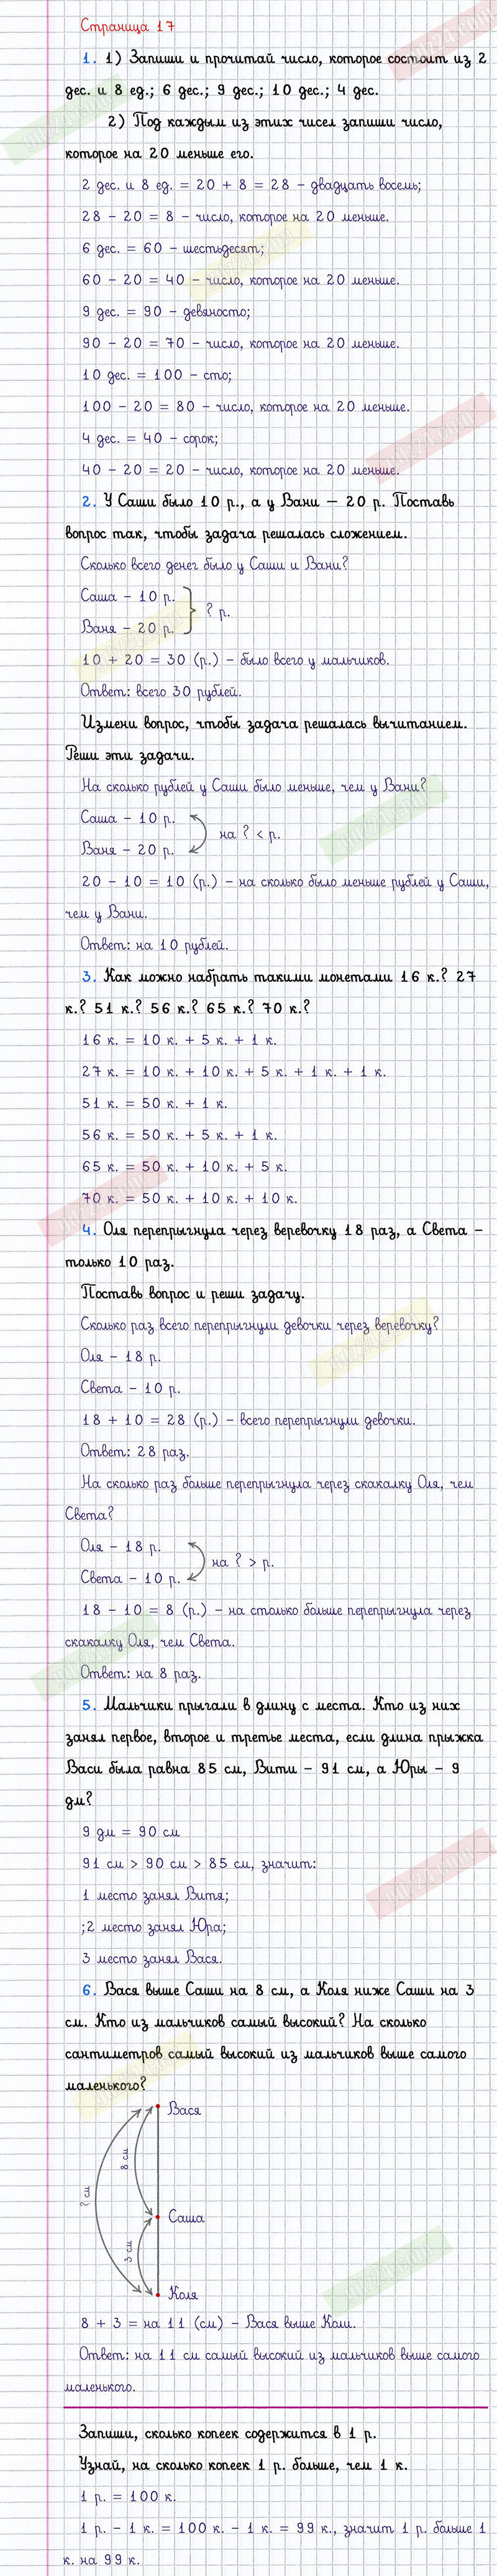 Страница 17
1. 1) Запиши и прочитай число, которое состоит из 2
дес. и 8 ед.; 6 дес.; 9 дес.; 10 дес.; 4 дес.
2) Под каждым из этих чисел запиши число,
которое на 20 меньше его.
2 дес. и 8 ед. = 20 + 8 = 28 – двадцать восемь;
28 – 20 = 8 – число, которое на 20 меньше.
6 дес. = 60 – шестьдесят;
60 – 20 = 40 – число, которое на 20 меньше.
9 дес. = 90 – девяносто;
90 – 20 = 70 – число, которое на 20 меньше.
10 дес. = 100 – сто;
100 – 20 = 80 – число, которое на 20 меньше.
4 дес. = 40 – сорок;
40 – 20 = 20 – число, которое на 20 меньше.
2. У Саши было 10 р., а у Вани – 20 р. Поставь
вопрос так, чтобы задача решалась сложением.
Сколько всего денег было у Саши и Вани?
Саша – 10 р.
? р.
Ваня – 20 р.
10 + 20 = 30 (р.) – было всего у мальчиков.
Ответ: всего 30 рублей.
Измени вопрос, чтобы задача решалась вычитанием.
Реши эти задачи.
На сколько рублей у Саши было меньше, чем у Вани?
Саша – 10 р.
на ? < р.
Ваня – 20 р.
20 – 10 = 10 (р.) – на сколько было меньше рублей у Саши,
чем у Вани.
Ответ: на 10 рублей.
3. Как можно набрать такими монетами 16 к.? 27
к.? 51 к.? 56 к.? 65 к.? 70 к.?
16 к. = 10 к. + 5 к. + 1 к.
27 к. = 10 к. + 10 к. + 5 к. + 1 к. + 1 к.
51 к. = 50 к. + 1 к.
56 к. = 50 к. + 5 к. + 1 к.
65 к. = 50 к. + 10 к. + 5 к.
70 к. = 50 к. + 10 к. + 10 к.
4. Оля перепрыгнула через веревочку 18 раз, а Света –
только 10 раз.
Поставь вопрос и реши задачу.
Сколько раз всего перепрыгнули девочки через веревочку?
Оля – 18 р.
Света – 10 р.
18 + 10 = 28 (р.) – всего перепрыгнули девочки.
Ответ: 28 раз.
На сколько раз больше перепрыгнула через скакалку Оля, чем
Света?
Оля – 18 р.
на ? > р.
Света – 10 р.
18 – 10 = 8 (р.) – на столько больше перепрыгнула через
скакалку Оля, чем Света.
Ответ: на 8 раз.
5. Мальчики прыгали в длину с места. Кто из них
занял первое, второе и третье места, если длина прыжка
Васи была равна 85 см, Вити – 91 см, а Юры – 9
дм?
9 дм = 90 см
91 см > 90 см > 85 см, значит:
1 место занял Витя;
;2 место занял Юра;
3 место занял Вася.
6. Вася выше Саши на 8 см, а Коля ниже Саши на 3
см. Кто из мальчиков самый высокий? На сколько
сантиметров самый высокий из мальчиков выше самого
маленького?
Вася
8 см
? см
Саша
3 см
Коля
8 + 3 = на 11 (см) – Вася выше Коли.
Ответ: на 11 см самый высокий из мальчиков выше самого
маленького.
Запиши, сколько копеек содержится в 1 р.
Узнай, на сколько копеек 1 р. больше, чем 1 к.
1 р. = 100 к.
1 р. – 1 к. = 100 к. – 1 к. = 99 к., значит 1 р. больше 1
к. на 99 к.